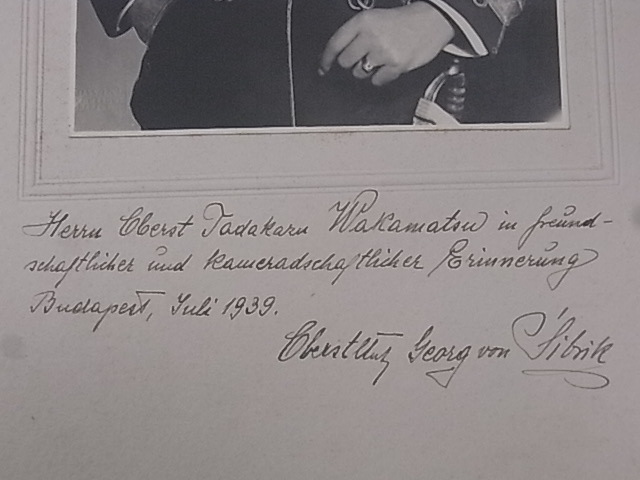 Herrn Oberst Tadakaru Wakamatsu in freund-
schaftlicher und kameradschaftlicher Erinnerung
Budapest, Juli 1939.
Oberstltnt Georg von Sibrik